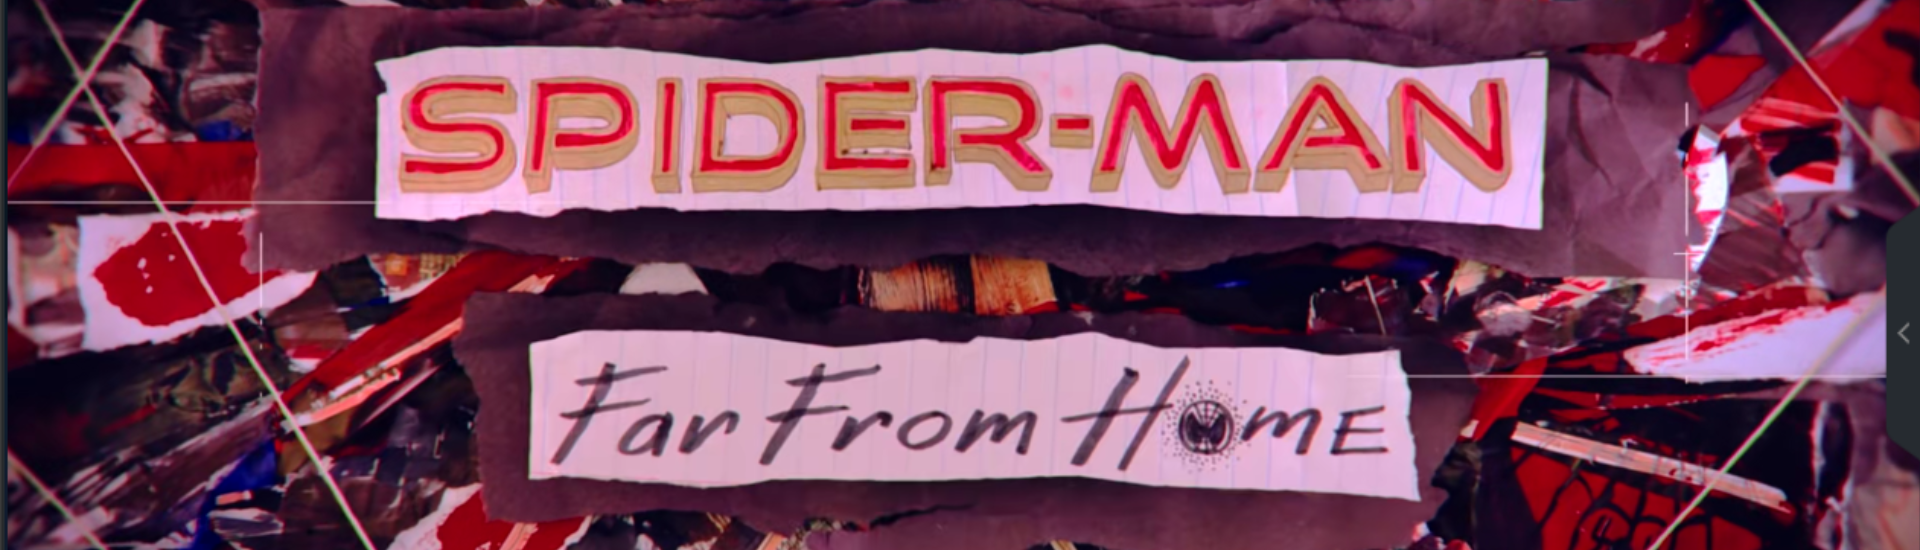 SPIDER-MAN
Far From HOME